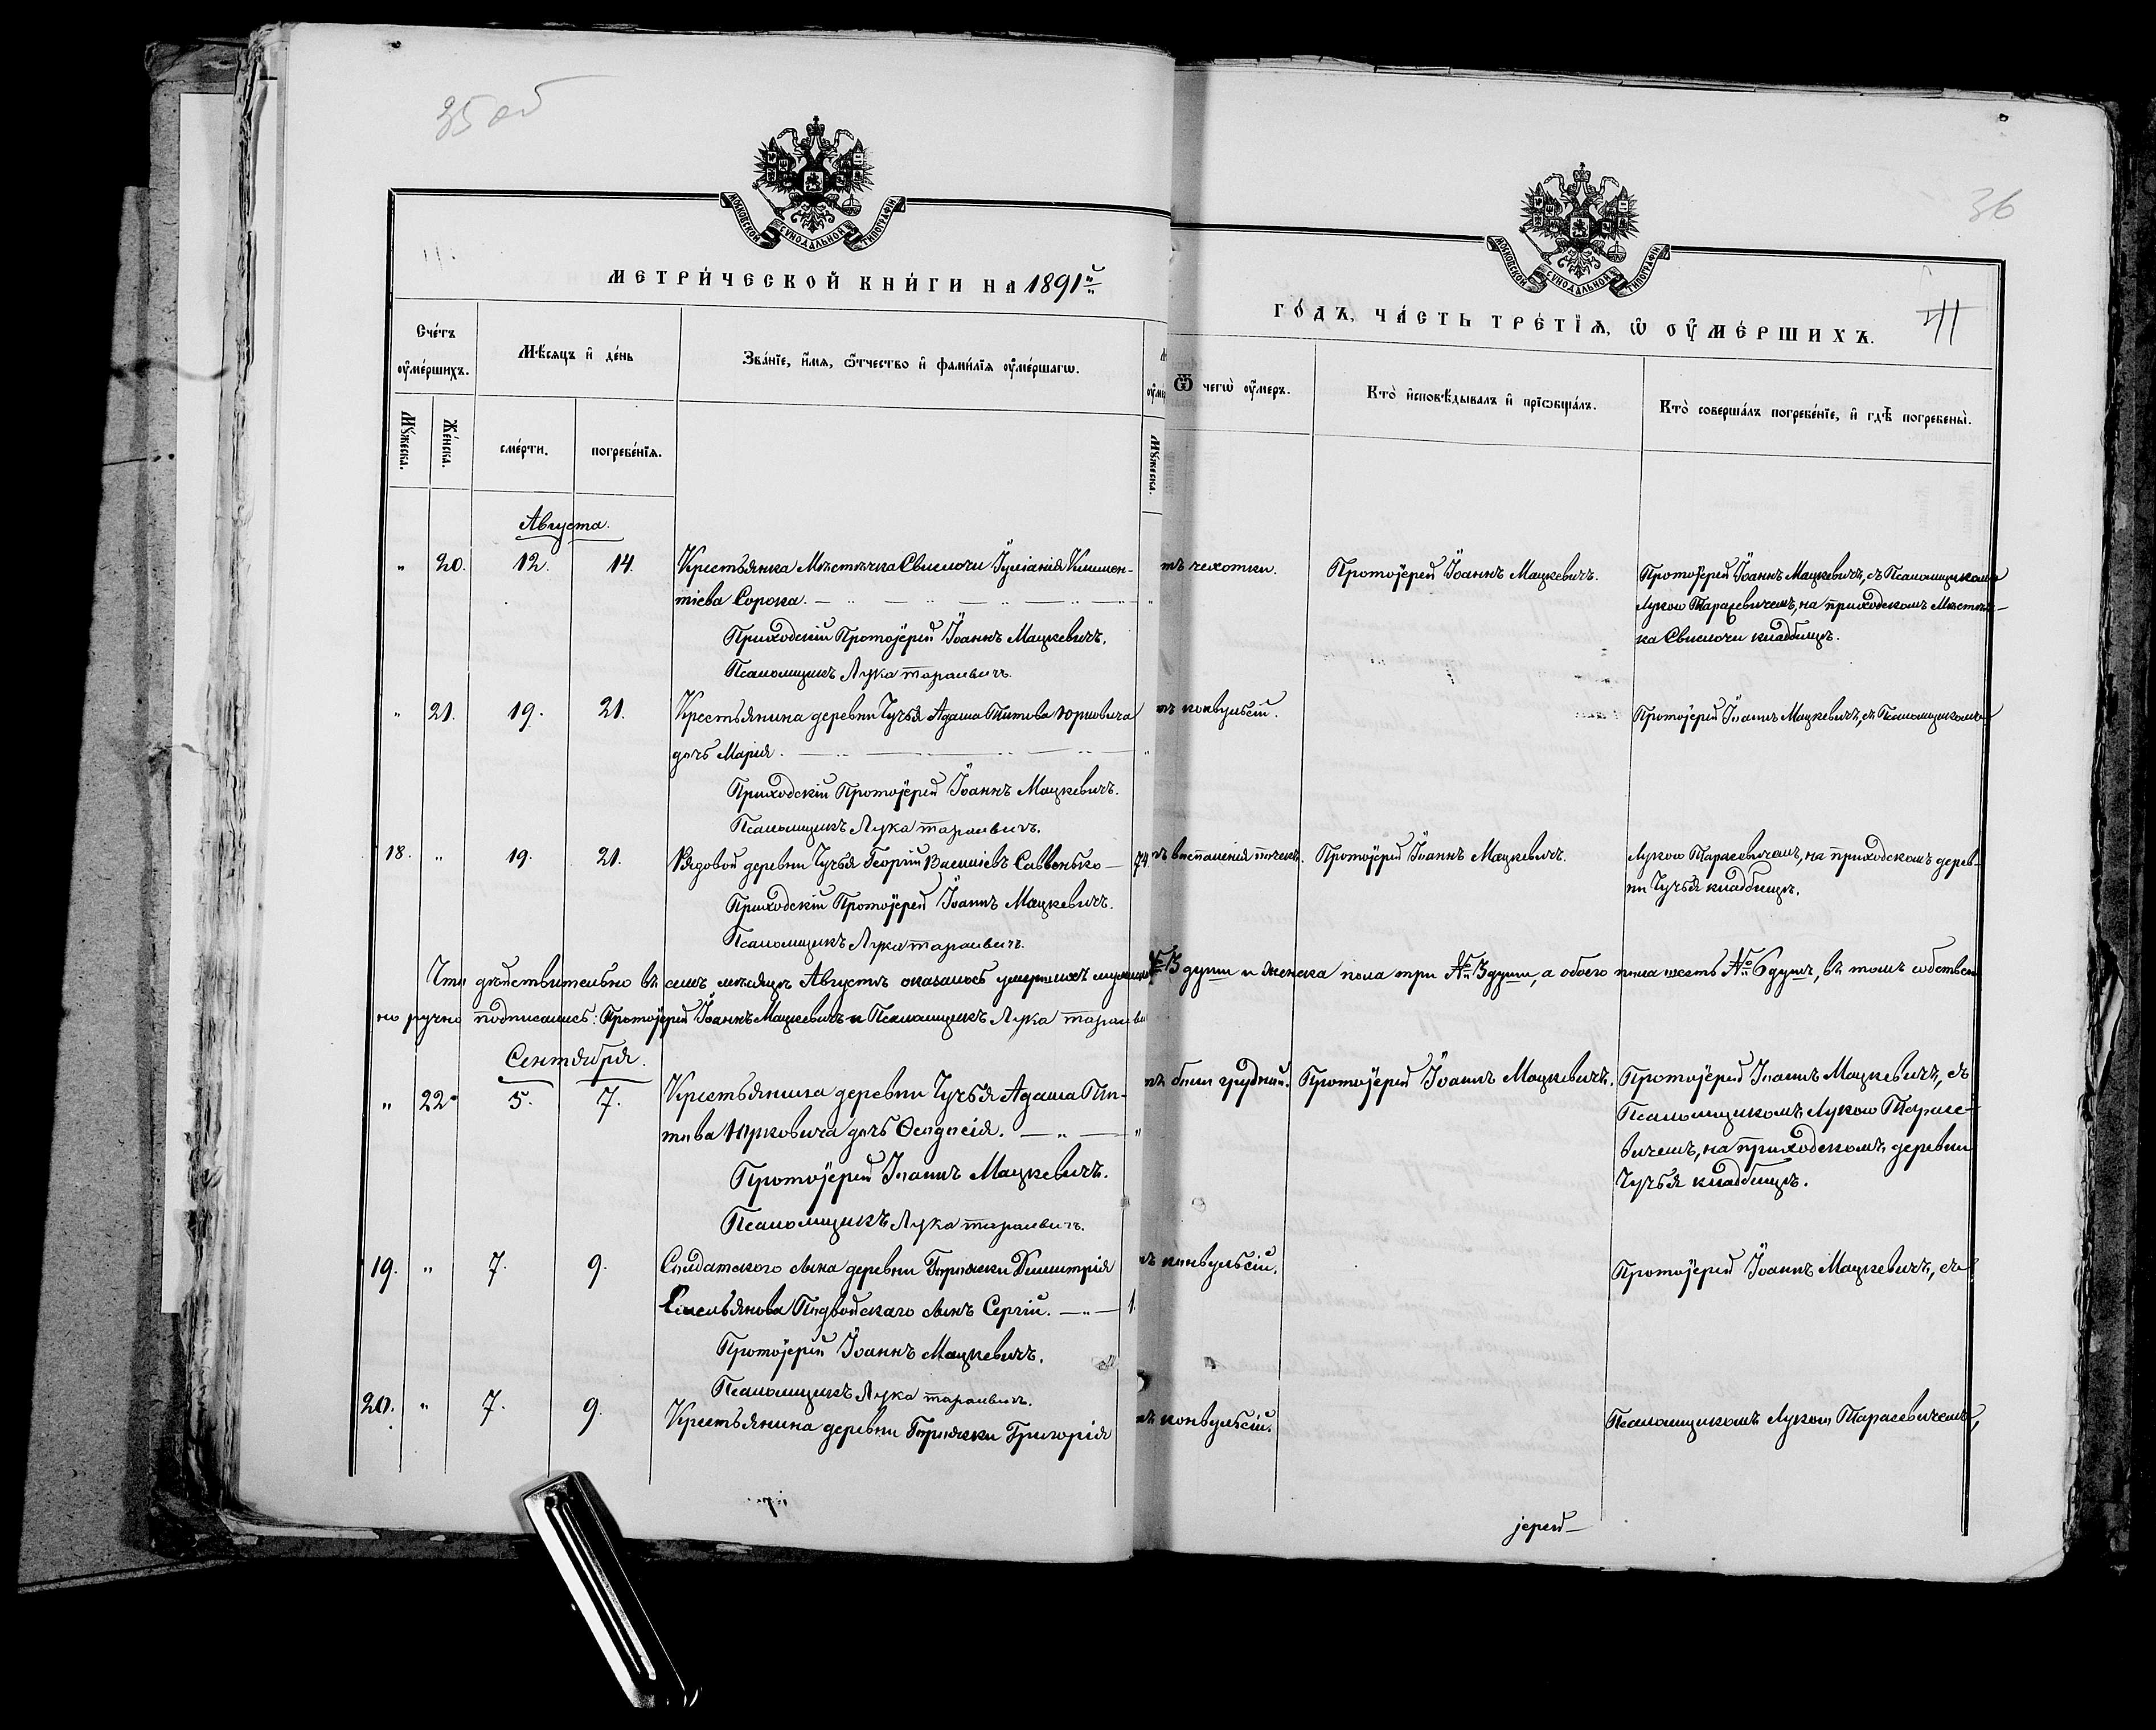 35 об
36
МОСКОВСКОЙ СѴНОДАЛЬНОЙ ТИПОГРАФІИ
МОСКОВСКОЙ СѴНОДАЛЬНОЙ ТИПОГРАФІИ
МЕТРИ́ЧЕСКОЙ КНИ́ГИ НА 1891й
ГО́ДЪ, ЧА́СТЬ ТРЕ́ТІѦ, Ѡ ОУ҆МЕ́РШИХЪ.
41
Сче́тъ оу҆ме́ршихъ.
Мѣ́сяцъ и҆ де́нь
Зва́нїе, и҆́мѧ, ѻ҆́тчество и҆ фами́лїѧ оу҆ме́ршагѡ.
Ѿ чегѡ̀ оу҆́меръ.
Кто̀ и҆сповѣ́дывалъ и҆ прїѡбща́лъ.
Кто̀ соверша́лъ погребе́нїе, и҆ гдѣ̀ погребены̀.
Мꙋ́жеска.
Же́нска.
сме́рти.
погребе́нїѧ.
Мꙋ́жеска.
Августа.
" 20. 12. 14. Крестьянка Мѣстечка Свислочи Іуліанія Климен-
тіева Сорока.
Приходскій Протоіерей Іоаннъ Мацкевичъ.
Псаломщикъ Лука Тарасевичъ.
тъ чахотки.
Протоіерей Іоаннъ Мацкевичъ.
Протоіерей Іоаннъ Мацкевичъ, съ Псаломщикомъ
Лукою Тарасевичемъ, на приходскомъ Мѣстеч-
ка Свислочи кладбищѣ.
" 21. 19. 21. Крестьянина деревни Чучья Адама Титова Юрковича
дочь Марія.
Приходскій Протоіерей Іоаннъ Мацкевичъ.
Псаломщикъ Лука Тарасевичъ.
тъ конвульсій.
Протоіерей Іоаннъ Мацкевичъ, съ Псаломщикомъ
18. " 19. 21. Рядовой деревни Чучья Георгій Василіевъ Саввенько — 74.
Приходскій Протоіерей Іоаннъ Мацкевичъ.
Псаломщикъ Лука Тарасевичъ.
Протоіерей Іоаннъ Мацкевичъ.
Лукою Тарасевичемъ, на приходскомъ дерев-
ни Чучья кладбищѣ.
Что дѣйствительно въ семъ мѣсяцѣ Августѣ оказалось умершихъ
№ 3 души и женска пола три № 3 души, а обоего пола шесть № 6 душъ, въ томъ собствен
но ручно подписались: Протоіерей Іоаннъ Мацкевичъ и Псаломщикъ Лука Тарасеви
Сентября.
" 22. 5. 7. Крестьянина деревни Чучья Адама Ти-
това Юрковича дочь Ѳеодосія.
Протоіерей Іоаннъ Мацкевичъ.
Псаломщикъ Лука Тарасевичъ.
тъ боли грудной.
Протоіерей Іоаннъ Мацкевичъ.
Протоіерей Іоаннъ Мацкевичъ, съ
Псаломщикомъ Лукою Тарасе-
вичемъ, на приходскомъ деревни
Чучья кладбищѣ.
19. " 7. 9. Солдатского сына деревни Димитрія
Емельянова Подвойскаго сынъ Сергій. — " — 1.
Протоіерей Іоаннъ Мацкевичъ.
Псаломщикъ Лука Тарасевичъ.
тъ конвульсій.
Протоіерей Іоаннъ Мацкевичъ, съ
20. " 7. 9. Крестьянина деревни Григорія
тъ конвульсій.
Псаломщикомъ Лукою Тарасевичемъ,
іерей